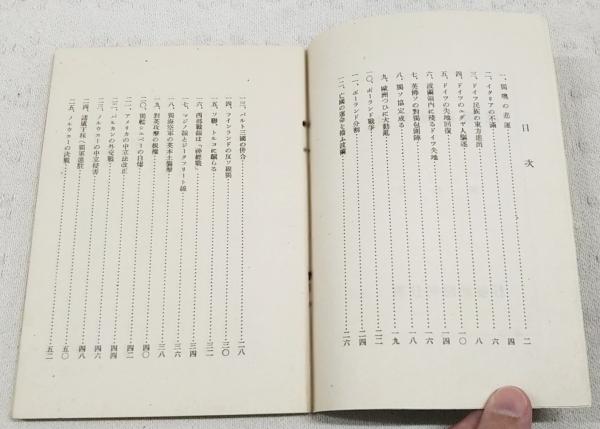 目次
一、獨墺の悲運……二
二、イタリアの不滿……四
三、ドイツ民族の東方進出……六
四、ドイツのユダヤ人驅逐……八
五、ドイツの失地回復……一〇
六、波蘭領内に殘るドイツ失地……一四
七、英佛ソの對獨包圍陣……一六
八、獨ソ協定成る……一九
九、歐洲つひに大動亂……二二
一〇、ポーランド戰爭……二四
一一、ポーランド分割
一二、亡國の運命を擔ふ波蘭……二六
一三、バルト三國の併合……二八
一四、フインランドの反ソ親獨……三〇
一五、ソ聯、トルコに蹴らる……三二
一六、西部戰線は「神經戰」……三四
一七、マジノ線とジークフリート線……三六
一八、獨海空軍の英本土襲擊……三八
一九、對英攻擊の根據
二〇、獨艦シユペーの自爆……四〇
二一、アメリカの中立法改正……四二
二二、バルカンの外交戰……四四
二三、ノルウエーの中立侵害……四六
二四、諾威丁抹へ獨軍進駐……四八
二五、ノルウエーの決戰……五〇